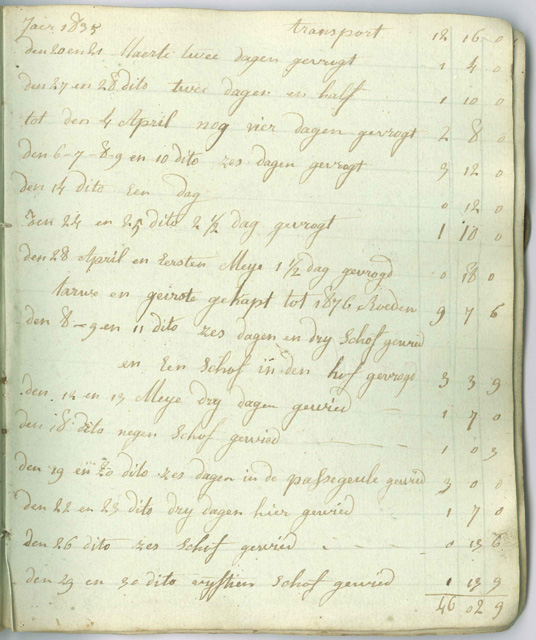 Jaer 1835 transport 12 16 0
den 20 en 21 Maerte twee dagen gevrogt 1 4 0
den 27 en 28 dito twee dagen en half 1 10 0
tot den 4 April nog vier dagen gevrogt 2 8 0
den 6-7-8-9 en 10 dito zes dagen gevrogt 3 12 0
den 14 dito een dag 0 12 0
den 24 en 25 dito 2 ½ dag gevrogt 1 10 0
den 28 April en Eersten Meye 1 ½ dag gevrogd 0 18 0
tarwe en geirste gekapt tot 1876 Roeden 9 7 6
den 8-9 en 11 dito zes dagen en dry Schof gewied
en Een Schof in den hof gevrogt 3 3 9
den 12 en 13 Meye dry dagen gewied 1 7 0
den 18 dito negen Schof gewied 1 0 3
den 19 en 20 dito zes dagen in de passegeule gewied 3 0 0
den 22 en 23 dito dry dagen hier gewied 1 7 0
den 26 dito zes Schof gewied 0 13 6
den 29 en 30 dito vyftien Schof gewied 1 13 9
46 02 9